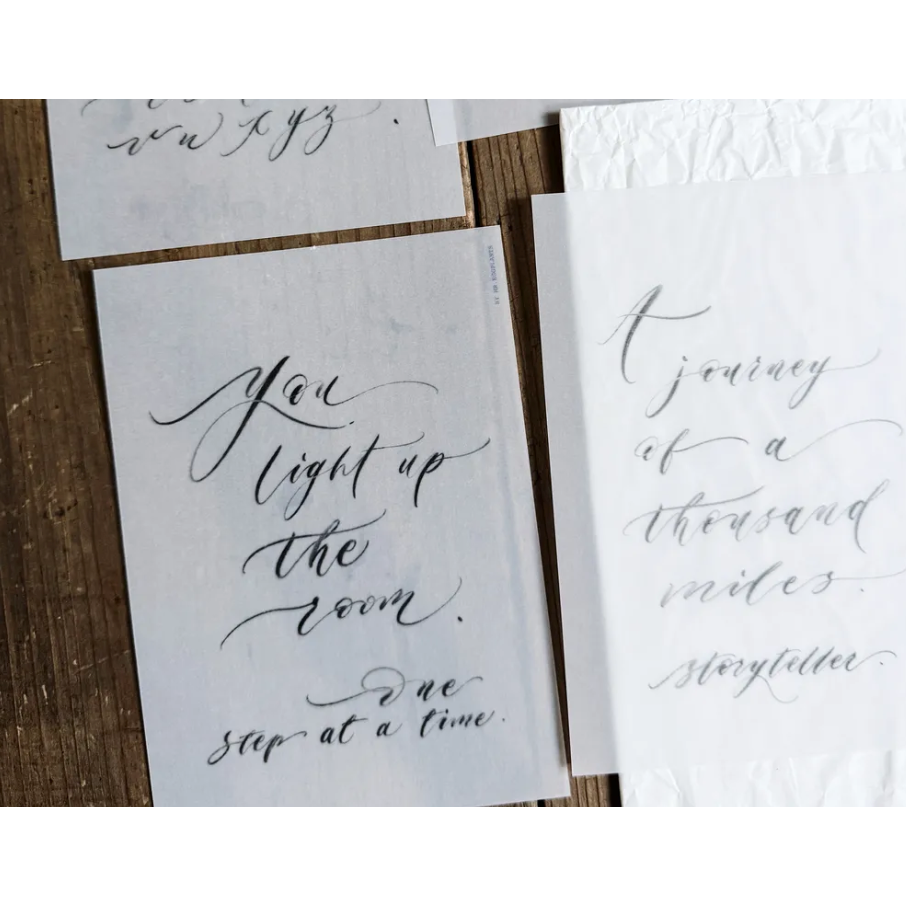 v w x y z .
You
light up
the
room.
One
step at a time.
A
journey
of a
thousand
miles.
storyteller.